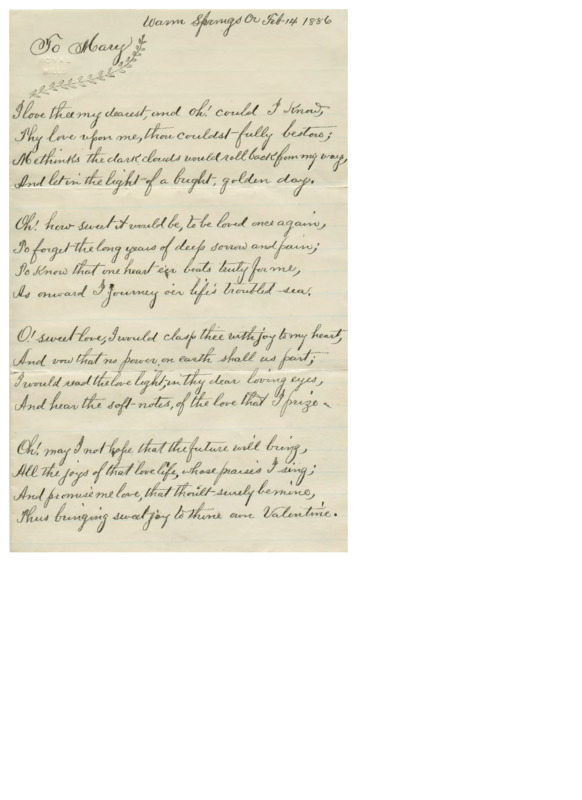 Warm Springs Or Feb. 14 1886
To Mary
I love thee my dearest, and oh! could I know,
Thy love upon me, thou couldst fully bestow;
Methinks the dark clouds would roll back from my way,
And let in the light of a bright, golden day.
Oh! how sweet it would be, to be loved once again,
To forget the long years of deep sorrow and pain;
To know that one heart e'er beats truly for me,
As onward I journey o'er life's troubled sea.
O! sweet love, I would clasp thee with joy to my heart,
And vow that no power on earth shall us part;
I would read the love light, in thy dear loving eyes,
And hear the soft notes, of the love that I prize.
Oh! may I not hope that the future will bring,
All the joys of that love life, whose praises I sing;
And promise me love, that thou'lt surely be mine,
Thus bringing sweet joy to thine own Valentine.